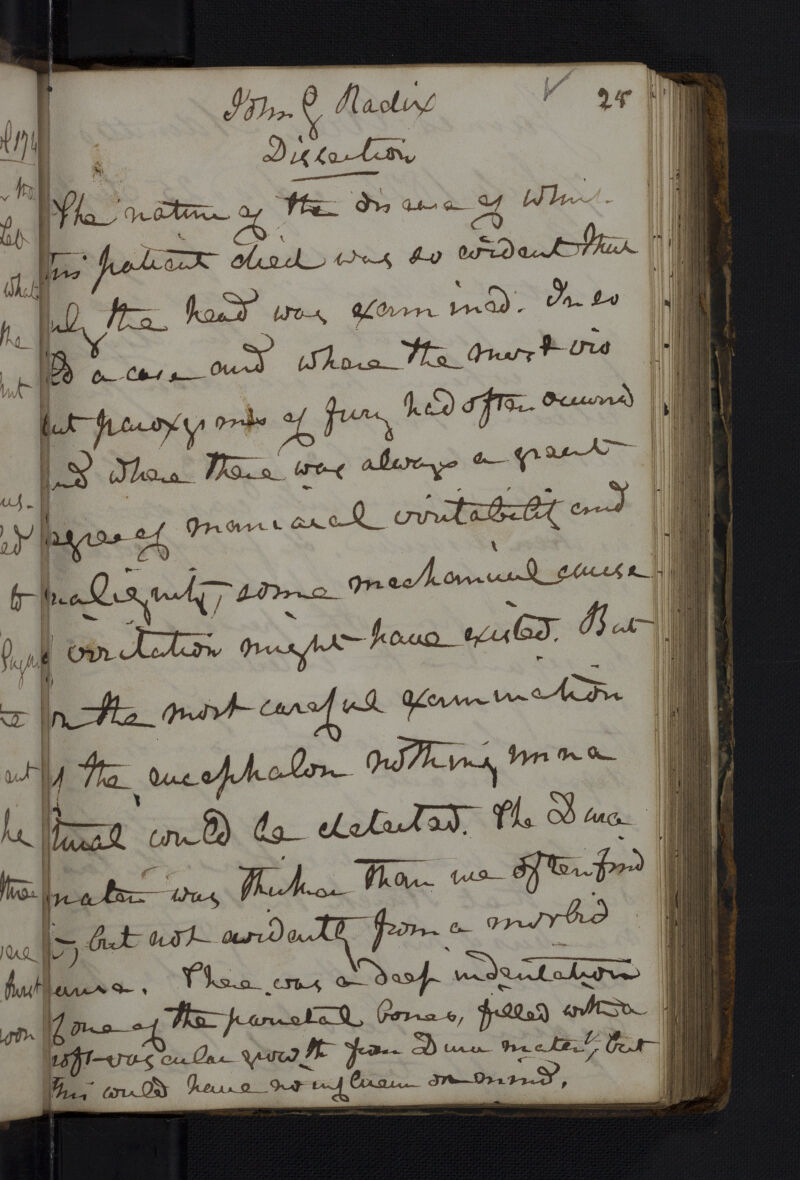 25
John G Radix
Dissection
The nature of the disease of which
this patient died was so evident that
only the head was examined. In so
old a case and where the most vio
lent paroxysms of fury had often occurred
and where there was always a great
degree of maniacal irritability and
malignity, some mechanical cause
of irritation might have existed. But
on the most careful examination
of the encephalon nothing unna
tural could be detected. The Dura
mater was thicker than we often find
it, but not evidently from a morbid
cause. There was a deep indentation
of one of the parietal bones, filled with a
soft vascular growth from Dura mater, but
this could have no influence on mind.